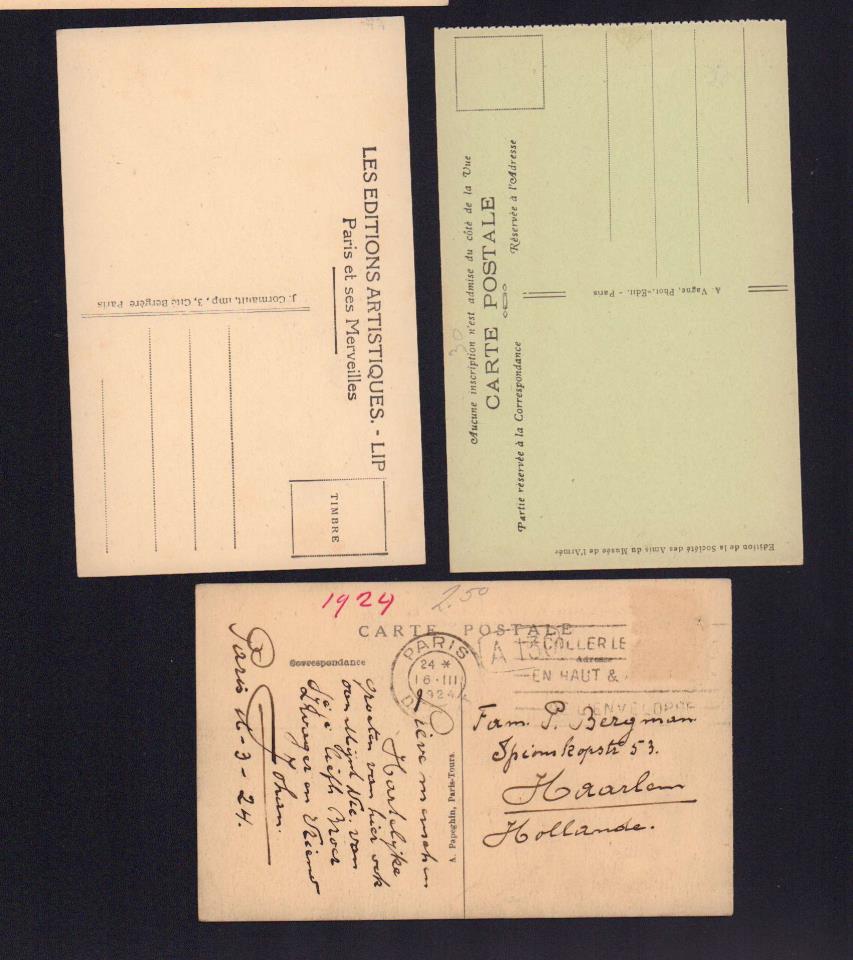 LES EDITIONS ARTISTIQUES. - LIP
Paris et ses Merveilles
J. Cormault, imp, 3, Cité Bergère Paris
TIMBRE
Aucune inscription n'est admise du côté de la Vue
CARTE POSTALE
Partie réservée à la Correspondance
Réservée à l'Adresse
A. Vagne, Phot.-Edit. - Paris
Edition de la Société des Amis du Musée de l'Armée
30
1924
2.50
CARTE POSTALE
Correspondance
Adresse
PARIS
24 *
16 · III
1924
A COLLER LE
EN HAUT &
ENVELOPPE
Paris 16-3-24.
Lieve menschen
Hartelyke
groeten van hier ook
van Mijnh
van
liefh Broer
Zwager en Vriend
Johan.
A. Papeghin, Paris-Tours.
Fam. P. Bergman
Spionskopstr 53.
Haarlem
Hollande.